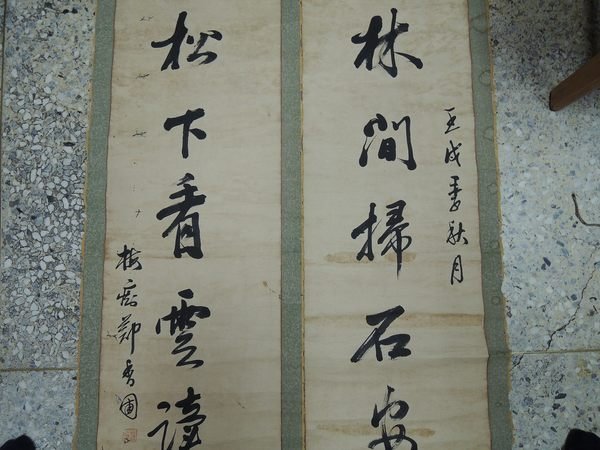 壬戌季秋月
林間掃石安
松下看雲讀
鄭香圃